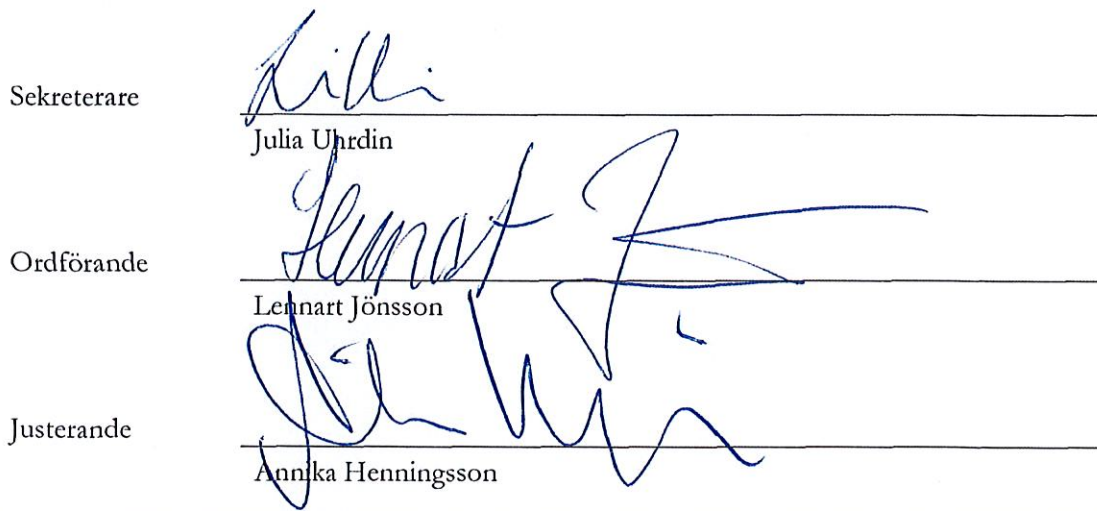 Sekreterare
Julia Uhrdin
Lennart
Ordförande
Lennart Jönsson
Justerande
Annika Henningsson